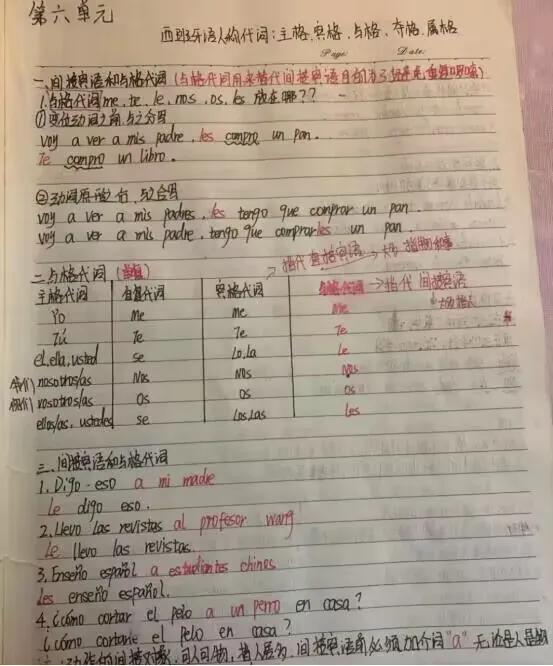 第六单元
西班牙语人称代词:主格,宾格,与格,夺格,属格
Page: Date:
一、间接宾语和与格代词(与格代词用来替代间接宾语目的为了避免重复啰嗦)
1.与格代词me, te, le, nos, os, les 放在哪??
①变位动词之前,与之分写
voy a ver a mis padre, les compro un pan.
Te compro un libro.
②动词原形之后,与之合写
voy a ver a mis padres, les tengo que comprar un pan.
voy a ver a mis padre, tengo que comprarles un pan.
指代直接宾语
二、与格代词
主格代词 自复代词 宾格代词 与格代词 → 指代间接宾语
Yo Me Me Me
Tú Te Te Te
el, ella, usted se Lo, La Le
我们 nosotros/as Nos Nos Nos
你们 vosotros/as Os Os Os
ellos/as, ustedes se Los, Las Les
三、间接宾语和与格代词
1. Digo eso a mi madre
le digo eso.
2. llevo las revistas al profesor wang
le llevo las revistas.
3. Enseño español a estudiantes chinos
les enseño español.
4. ¿cómo cortar el pelo a un perro en casa?
¿cómo cortarle el pelo en casa?
动作的间接对象,可人可物,指人居多,间接宾语前必须加介词"a"无论是人是物